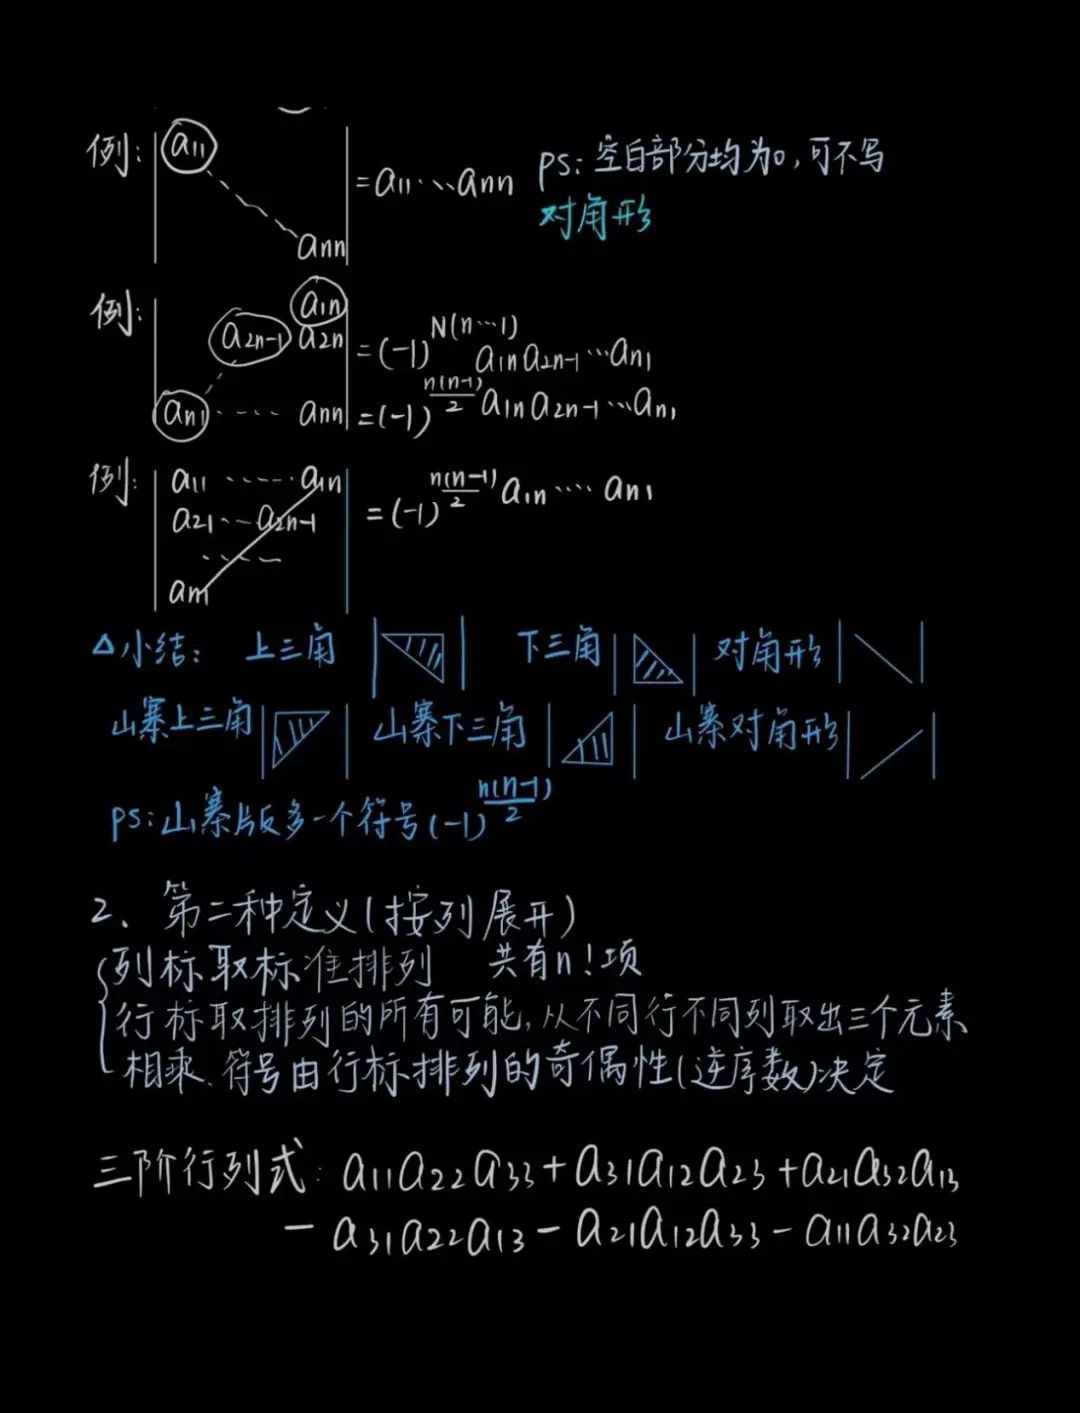 例: | a11 ann | = a11…ann ps: 空白部分均为0,可不写
对角形
例: | a1n
a2n-1 a2n | = (-1)^N(n…1) a1n a2n-1 … an1
an1 …. ann | = (-1)^n(n-1)/2 a1n a2n-1 … an1
例: | a11 …… a1n | = (-1)^n(n-1)/2 a1n …. an1
a21 … a2n-1
……
an1
△小结: 上三角 下三角 对角形
山寨上三角 山寨下三角 山寨对角形
ps:山寨版多一个符号(-1)^n(n-1)/2
2、第二种定义(按列展开)
列标取标准排列 共有n!项
行标取排列的所有可能,从不同行不同列取出三个元素
相乘、符号由行标排列的奇偶性(逆序数)决定
三阶行列式: a11a22a33+a31a12a23+a21a32a13
-a31a22a13-a21a12a33-a11a32a23